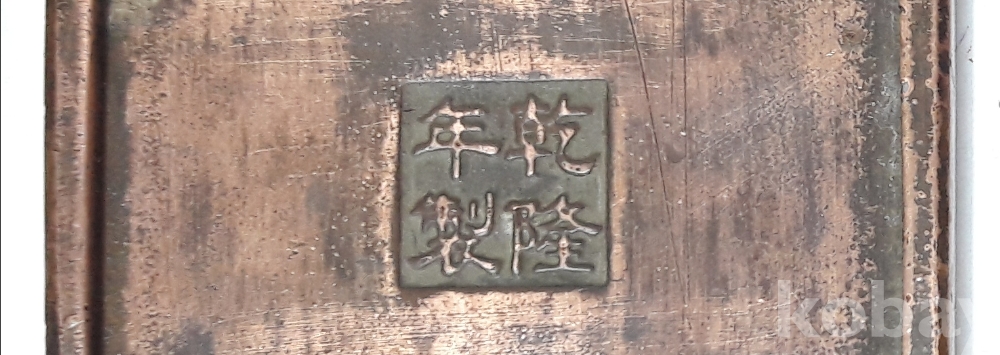 乾隆
年製
kobay